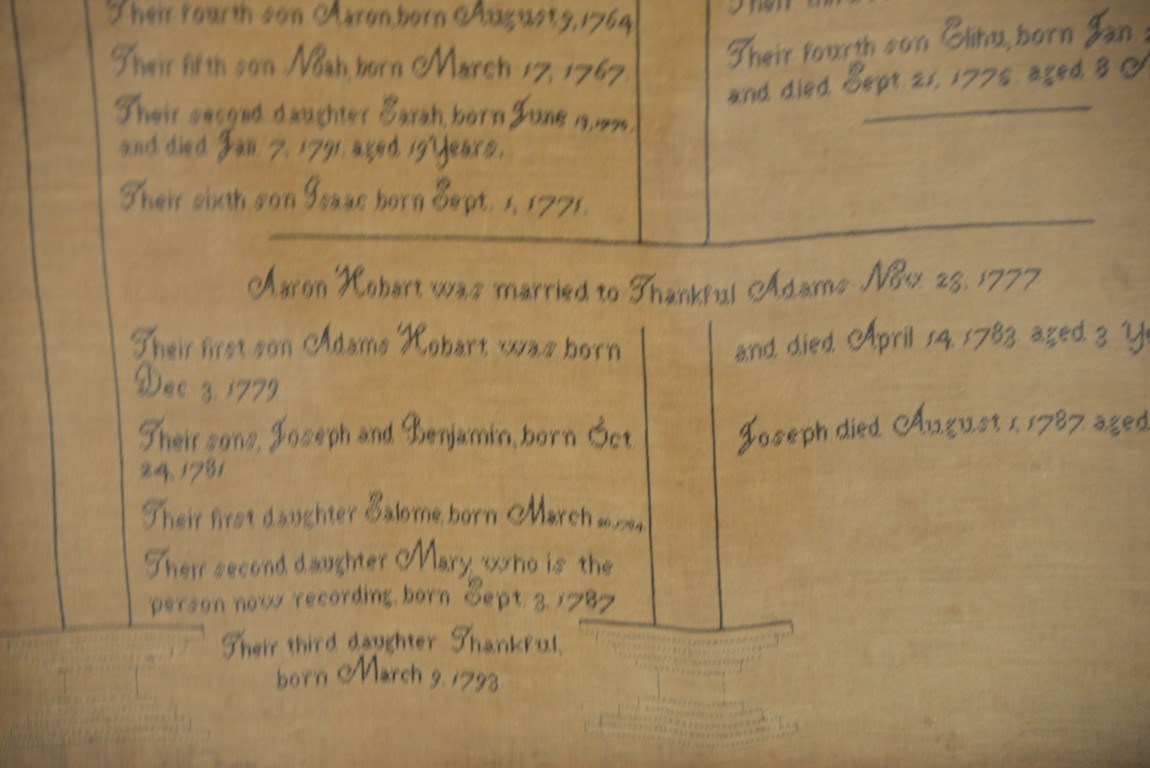 Their fourth son Aaron, born August 9, 1764
Their fifth son Noah, born March 17, 1767
Their second daughter Sarah, born June
and died Jan 7, 1791, aged 19 Years.
Their sixth son Isaac born Sept. 1, 1771.
Their third
Their fourth son Elihu, born Jan
and died Sept 21, 1775 aged 8
Aaron Hobart was married to Thankful Adams Nov 23, 1777
Their first son Adams Hobart was born
Dec 3, 1779
Their sons, Joseph and Benjamin, born Oct
24, 1781
Their first daughter Salome, born March
Their second daughter Mary, who is the
person now recording, born Sept. 3, 1787
Their third daughter Thankful,
born March 9, 1793
and died April 14, 1783 aged 3
Joseph died August 1, 1787 aged